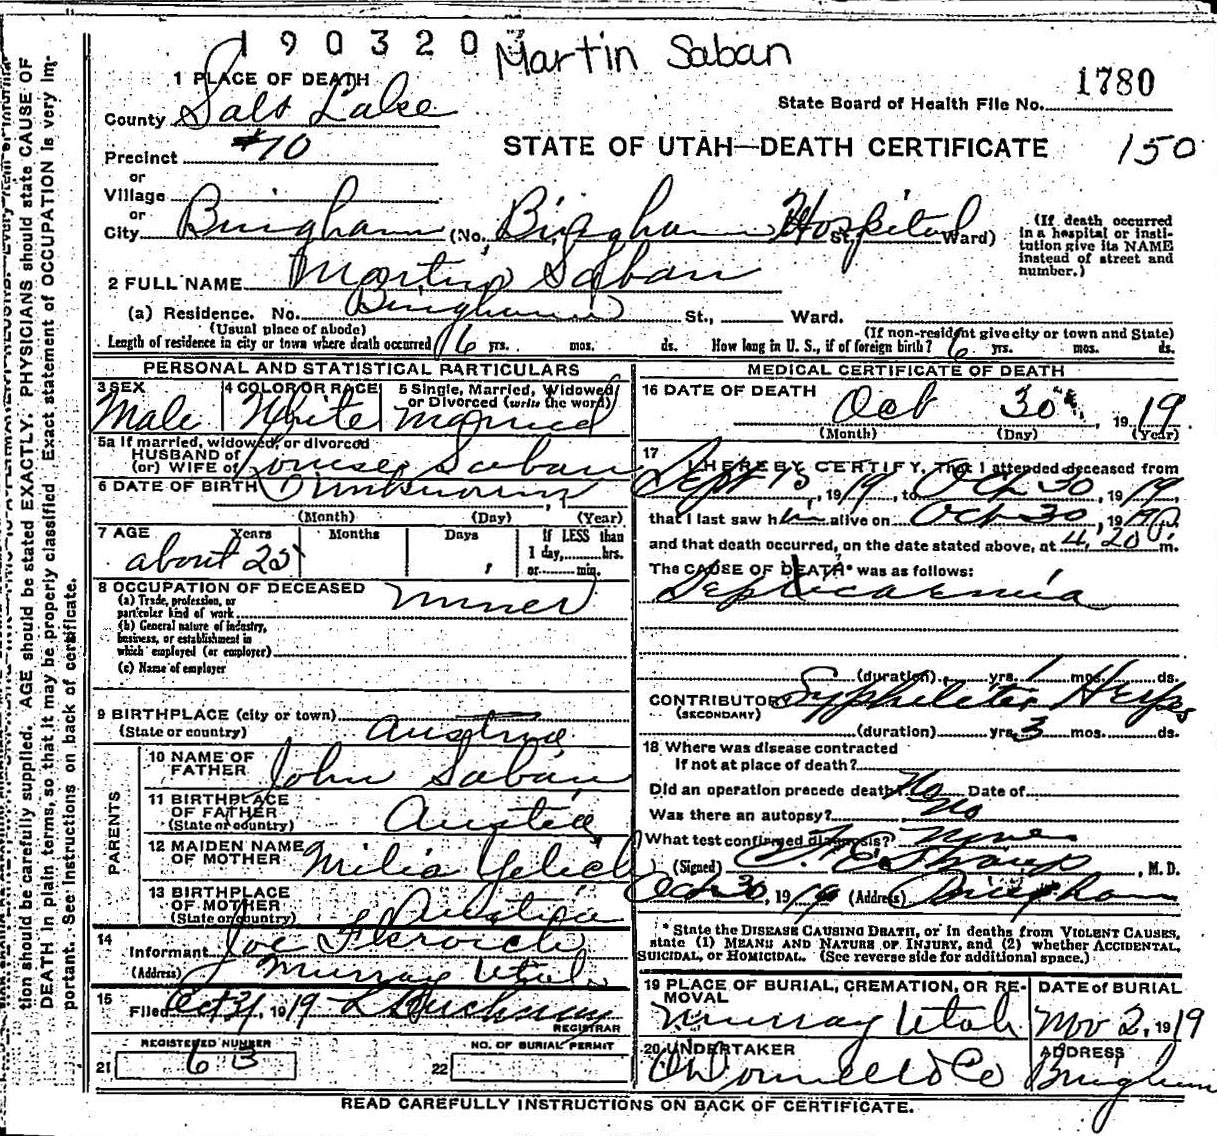 1903203
Martin Saban
1780
State Board of Health File No.
1 PLACE OF DEATH
County Salt Lake
STATE OF UTAH—DEATH CERTIFICATE 150
Precinct #70
or
Village
or
City Bingham (No. Bingham Hospital St. Ward)
(If death occurred in a hospital or institution give its NAME instead of street and number.)
2 FULL NAME Martin Saban
(a) Residence. No. Bingham St., Ward.
(Usual place of abode)
(If non-resident give city or town and State)
Length of residence in city or town where death occurred 6 yrs. mos. ds. How long in U. S., if of foreign birth? 6 yrs. mos. ds.
PERSONAL AND STATISTICAL PARTICULARS
3 SEX
Male
4 COLOR OR RACE
White
5 Single, Married, Widowed/ or Divorced (write the word)
Married
5a If married, widowed, or divorced
HUSBAND of
(or) WIFE of Saban
6 DATE OF BIRTH Unknown
(Month) (Day) (Year)
7 AGE
Years Months Days
about 25
If LESS than
1 day, hrs.
or min.
8 OCCUPATION OF DECEASED
(a) Trade, profession, or
particular kind of work Miner
(b) General nature of industry,
business, or establishment in
which employed (or employer)
(c) Name of employer
9 BIRTHPLACE (city or town)
(State or country) Austria
PARENTS
10 NAME OF
FATHER John Saban
11 BIRTHPLACE
OF FATHER
(State or country) Austria
12 MAIDEN NAME
OF MOTHER Milia Yelich
13 BIRTHPLACE
OF MOTHER
(State or country) Austria
14
Informant Joe
(Address) Murray Utah
15
Filed Oct 31, 1919
REGISTRAR
REGISTERED NUMBER
21 63
NO. OF BURIAL PERMIT
22
MEDICAL CERTIFICATE OF DEATH
16 DATE OF DEATH
Oct 30 1919
(Month) (Day) (Year)
17
I HEREBY CERTIFY, That I attended deceased from
Sept 15, 1919, to Oct 30, 1919
that I last saw him alive on Oct 30, 19
and that death occurred, on the date stated above, at 4:20 m.
The CAUSE OF DEATH* was as follows:
Septicaemia
(duration) yrs. 1 mos. ds.
CONTRIBUTORY
(SECONDARY)
(duration) yrs. 3 mos. ds.
18 Where was disease contracted
If not at place of death?
Did an operation precede death? No Date of
Was there an autopsy? no
What test confirmed diagnosis? None
(Signed) , M. D.
Oct 30, 1919 (Address) Bingham
* State the DISEASE CAUSING DEATH, or in deaths from VIOLENT CAUSES,
state (1) MEANS AND NATURE OF INJURY, and (2) whether ACCIDENTAL,
SUICIDAL, or HOMICIDAL. (See reverse side for additional space.)
19 PLACE OF BURIAL, CREMATION, OR REMOVAL
Murray Utah
DATE of BURIAL
Nov 2, 1919
20 UNDERTAKER
O'Donnell & Co
ADDRESS
Bingham
READ CAREFULLY INSTRUCTIONS ON BACK OF CERTIFICATE.
tion should be carefully supplied. AGE should be stated EXACTLY. PHYSICIANS should state CAUSE OF
DEATH in plain terms, so that it may be properly classified. Exact statement of OCCUPATION is very im-
portant. See instructions on back of certificate.